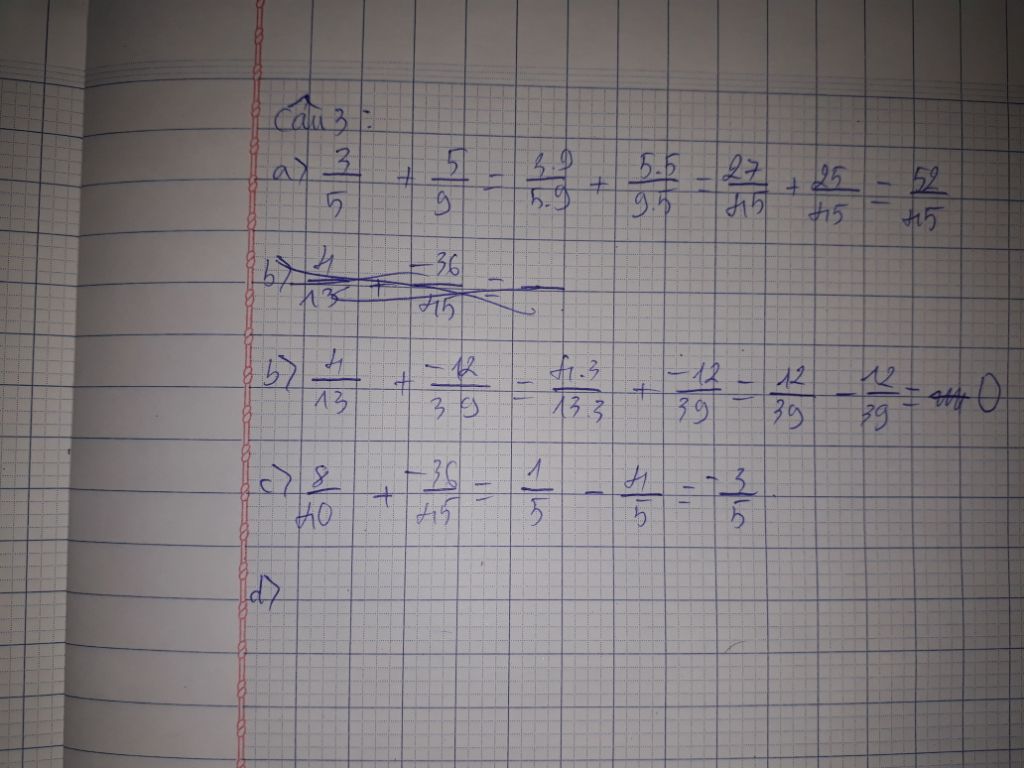 Câu 3:
a) 3/5 + 5/9 = 3.9/5.9 + 5.5/9.5 = 27/45 + 25/45 = 52/45
b) 4/13 + -36/45 =
b) 4/13 + -12/39 = 4.3/13.3 + -12/39 = 12/39 - 12/39 = 0
c) 8/40 + -36/45 = 1/5 - 4/5 = -3/5
d)